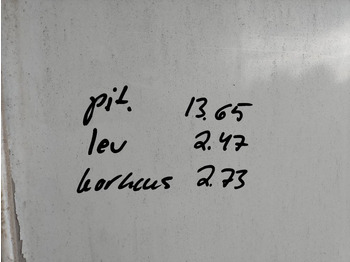 pit. 13.65
lev 2.47
korkeus 2.73